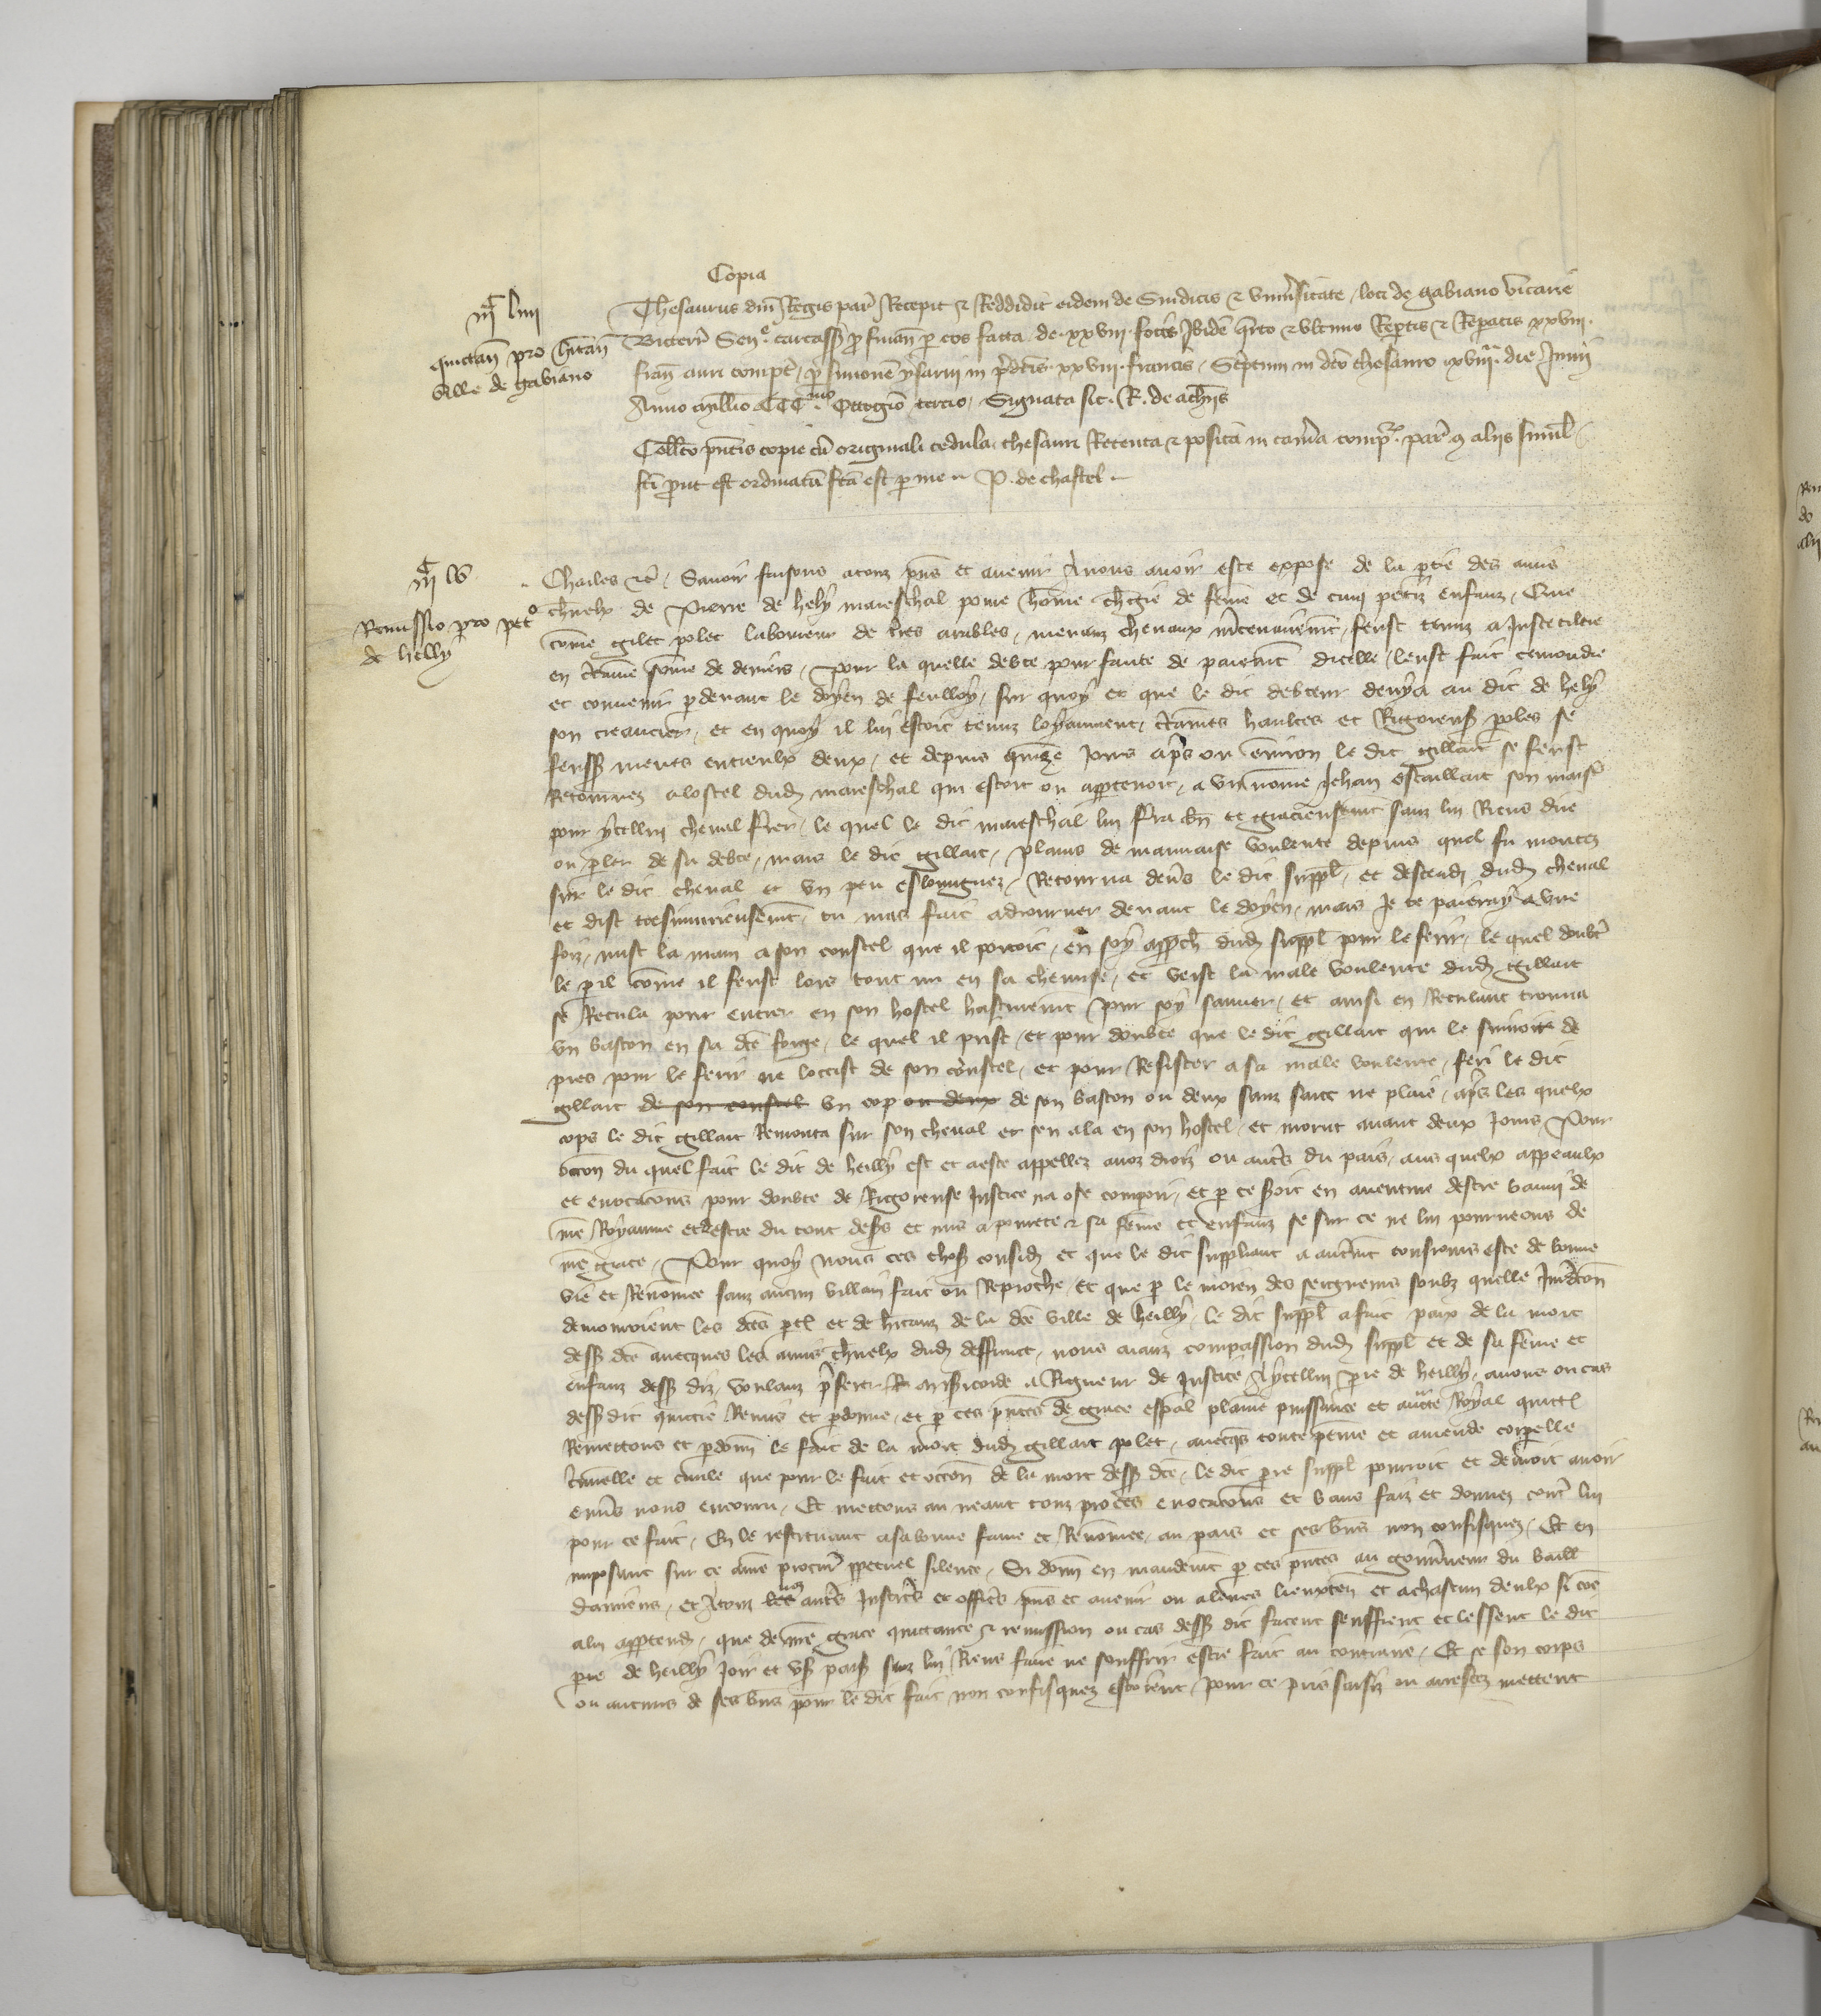 Copia
iijc liiij
quictan̄ pro h̄itan̄
ville de gabiano
Thesaurus dn̄i Regis par̄ Recepit et Reddidit eidem de Sindicis et vniu̾sitate loci de gabiano vicarie
Bitterr̄ Sen̄. carcass̄ p̱ finan̄ p̱ eos facta de xxviij focis Ibidē q̾rto et vltimo Rep̱tis et Rep̱atis xxviij
fran̄ auri compt̄ p̱ simonē in p̾dc̄is xxviij francis Sc̾ptum in dc̄o thesauro xviija die Junij
Anno millio CCCmo Octogio tercio Signata sic. R. de achiis
Coll̄to pn̄tis copie cū originali cedula thesauri Retenta et posita in cam̾a comp. par̄ 9 aliis simil̄
fc̄i put est ordinatū fc̄a est p̱ me P. de chastel
iijc lv
Remissio pro pet°
de helly
Charles etc̄ Sauoir faisons a touz p̾ns et auenir A nous auoir este expose de la p̱tie des amis
charnelx de Pierre de hely mareschal poure hōme ch̾gie de fēme et de cinq petiz enfanz Que
cōme gilet polet laboureur de t̾res arables menanz cheuaux feust tenuz a
en c̾taine sōme de deniers pour la quelle debte pour faute de paiemt̄ dicelle leust fait semondre
et conuenir p̱deuant le doyen de feulloy sur quoy et que le dit debteur denya au dit de hely
son creancier et en quoy il lui estoit tenuz loyaument c̾taines haultes et Rigoreuses p̱oles se
feuss meues entreulx deux et depuis quinze jours ap̾s ou enuiron le dit gillait se feust
Retournez a lostel dud mareschal qui estoit ou app̱tenoit a vn nōme Jehan estaillart son maist̾
pour ycellui cheual frer le quel le dit mareschal lui fra bn̄ et gracieusemt̄ sanz lui Riens dire
ou p̱ler de sa debte mais le dit gillait plains de mauuaise voulente depuis quil fu montez
sur le dit cheual et vn peu eslongniez Retourna deu̾s le dit suppl̄ et descendi dud cheual
et dist tresiniurieusemt̄ tu mas fait adiourner deuant le doyen mais Je te paieray a vne
foiz mist la main a son coustel que il portoit en soy app̱ch̄ dud suppl̄ pour le ferir le quel doubt̾
le p̱il cōme il feust lors tout nu en sa chemise et veist la male voulente dud gillait
se Recula pour entrer en son hostel hastiuemt̄ pour soy sauuer et ainsi en Reculant trouua
vn baston en sa dc̄e forge le quel il prist et pour doubte que le dit gillait qui le suiuoit de
pres pour le ferir ne loccist de son coustel et pour Resister a sa male voulente feri le dit
gillait de son coustel vn cop ou deux de son baston ou deux sanz sanc ne plaie ap̾s les quelx
cops le dit gillait Remonta sur son cheual et sen ala en son hostel et morut auant deux jours Pour
occon̄ du quel fait le dit de heilly est et a este appellez a noz droiz ou autres du pais aus quelx appeaulx
et euocac̄ons pour doubte de Rigoreuse Justice na ose comparoir et p̱ ce soit en auenture destre banni de
nr̄e Royaume et destre du tout desers et mis a pourete et sa fēme et enfanz se sur ce ne lui pourueons de
nr̄e grace Pour quoy nous ces choses considē et que le dit suppliant a autremt̄ tousiours este de bonne
vie et Renōmee sanz aucun villain fait ou Reproche et que p̱ le moien des seigneurs soubz quelle Jurid̄con
demouroient les dc̄es p̱t̄ et de h̄itanz de la dc̄e ville de heilly le dit suppl̄ a fait paix de la mort
dess dc̄e auecques les amis charnelx dud deffunct nous aianz compassion dud suppl̄ et de sa fēme et
enfanz dess diz voulanz p̾ferer misericorde a Rigueur de Justice A ycellui p̾re de heilly auons ou cas
dess dit quictie Remis et p̱donne et p̱ ces pn̄tes de grace esp̄al plaine puissance et aucte Royal quitt̄
Remettons et p̱donn̄ le fait de la mort dud gillait polet auecq̾s toute peine et amende corporelle
c̾minelle et ciuile que pour le fait et occon̄ de la mort dess dc̄e le dit p̾re suppl̄ pourroit et deuroit auoir
enu̾s nous encouru Et mettons au neant touz procès euocac̄ons et bans faiz et donnez cont̾ lui
pour ce fait En le restituant a sa bonne fame et Renōmee au pais et ses bn̄s non confisquez Et en
imposant sur ce a nr̄e procur̄ pp̱etuel silence Si donn̄ en mandemt̄ p̱ ces pn̄tes au gou̾neur du baill̄
damiens et A touz les noz aut̾s Justic̾s et offic̾s pn̄s et auenir ou a leurs lieuxten̄ et a chascun deulx si cōe
a lui app̱tendra que de nr̄e grace quittance et remission ou cas dess dit facent seuffrent et lessent le dit
p̾re de heilly joir et vser paisiblement sanz lui Riens faire ne souffrir estre fait au contraire Et se son corps
ou aucuns de ses bn̄s pour le dit fait non confisquez estoient pour ce pris saisiz ou arrestez mettent